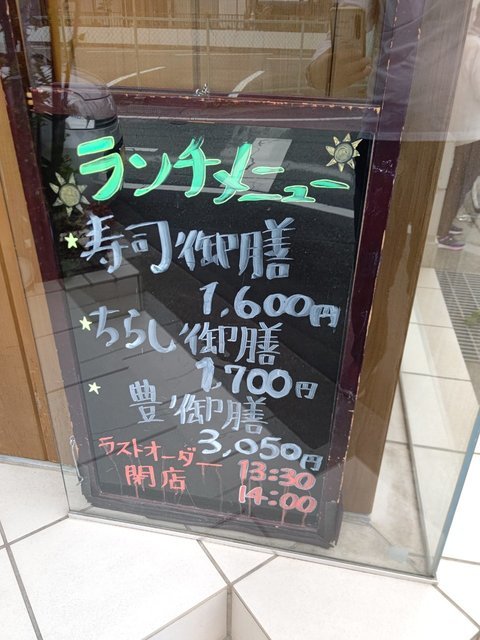 ランチメニュー
寿司御膳
1,600円
ちらし御膳
1,700円
豊御膳
3,050円
ラストオーダー 13:30
閉店 14:00